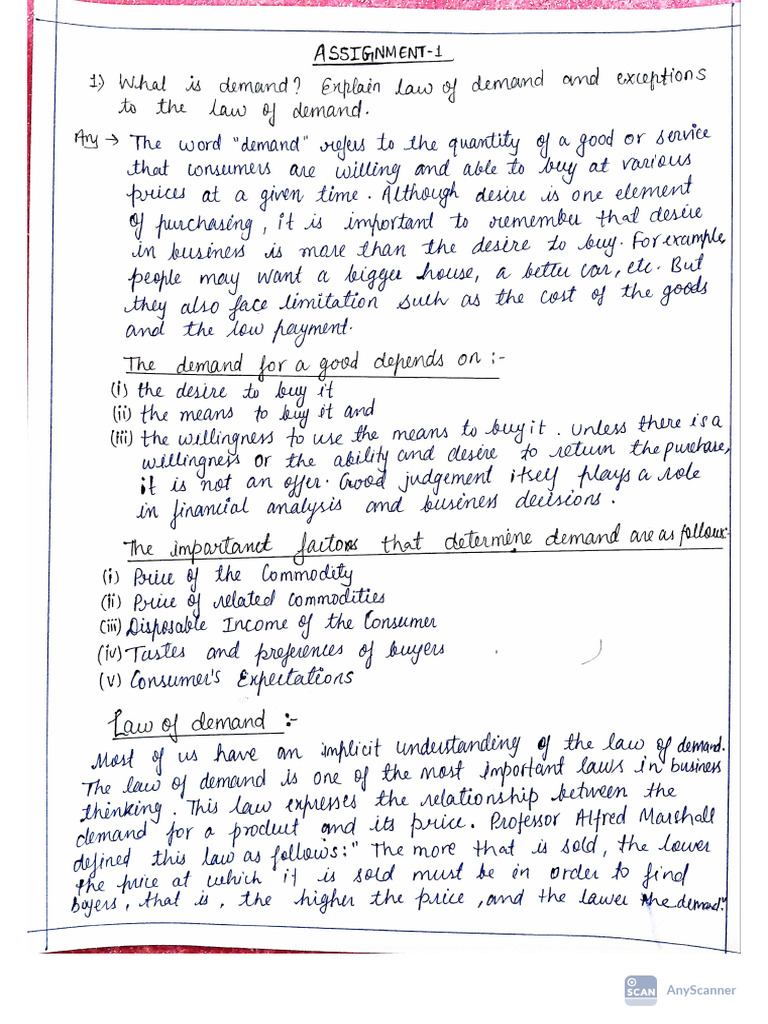 ASSIGNMENT-1
1) What is demand? Explain law of demand and exceptions
to the law of demand.
Ans → The word "demand" refers to the quantity of a good or service
that consumers are willing and able to buy at various
prices at a given time. Although desire is one element
of purchasing, it is important to remember that desire
in business is more than the desire to buy. For example,
people may want a bigger house, a better car, etc. But
they also face limitation such as the cost of the goods
and the low payment.
The demand for a good depends on :-
(i) the desire to buy it
(ii) the means to buy it and
(iii) the willingness to use the means to buy it. Unless there is a
willingness or the ability and desire to return the purchase,
it is not an offer. Good judgement itself plays a role
in financial analysis and business decisions.
The importanct factors that determine demand are as follows:-
(i) Price of the Commodity
(ii) Price of related commodities
(iii) Disposable Income of the Consumer
(iv) Tastes and preferences of buyers
(v) Consumer's Expectations
Law of demand :-
Most of us have an implicit understanding of the law of demand.
The law of demand is one of the most important laws in business
thinking. This law expresses the relationship between the
demand for a product and its price. Professor Alfred Marshall
defined this law as follows:" The more that is sold, the lower
the price at which it is sold must be in order to find
boyers, that is, the higher the price, and the lawer the demand."
SCAN AnyScanner